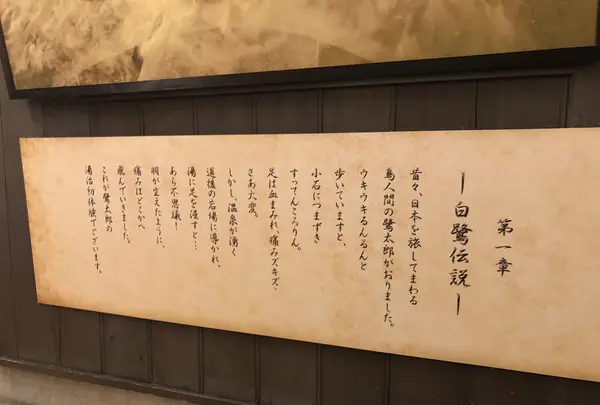 第一章
―白鷺伝説―
昔々、日本を旅してまわる
鳥人間の鷺太郎がおりました。
ウキウキるんるんと
歩いていますと、
小石につまずき
すってんころりん。
足は血まみれ、痛みズキズキ
さあ大変。
しかし、温泉が湧く
道後の岩場に導かれ、
湯に足を浸すと…
あら不思議!
羽が生えたように、
痛みはどこかへ
飛んでいきました。
これが鷺太郎の
湯治初体験でございます。